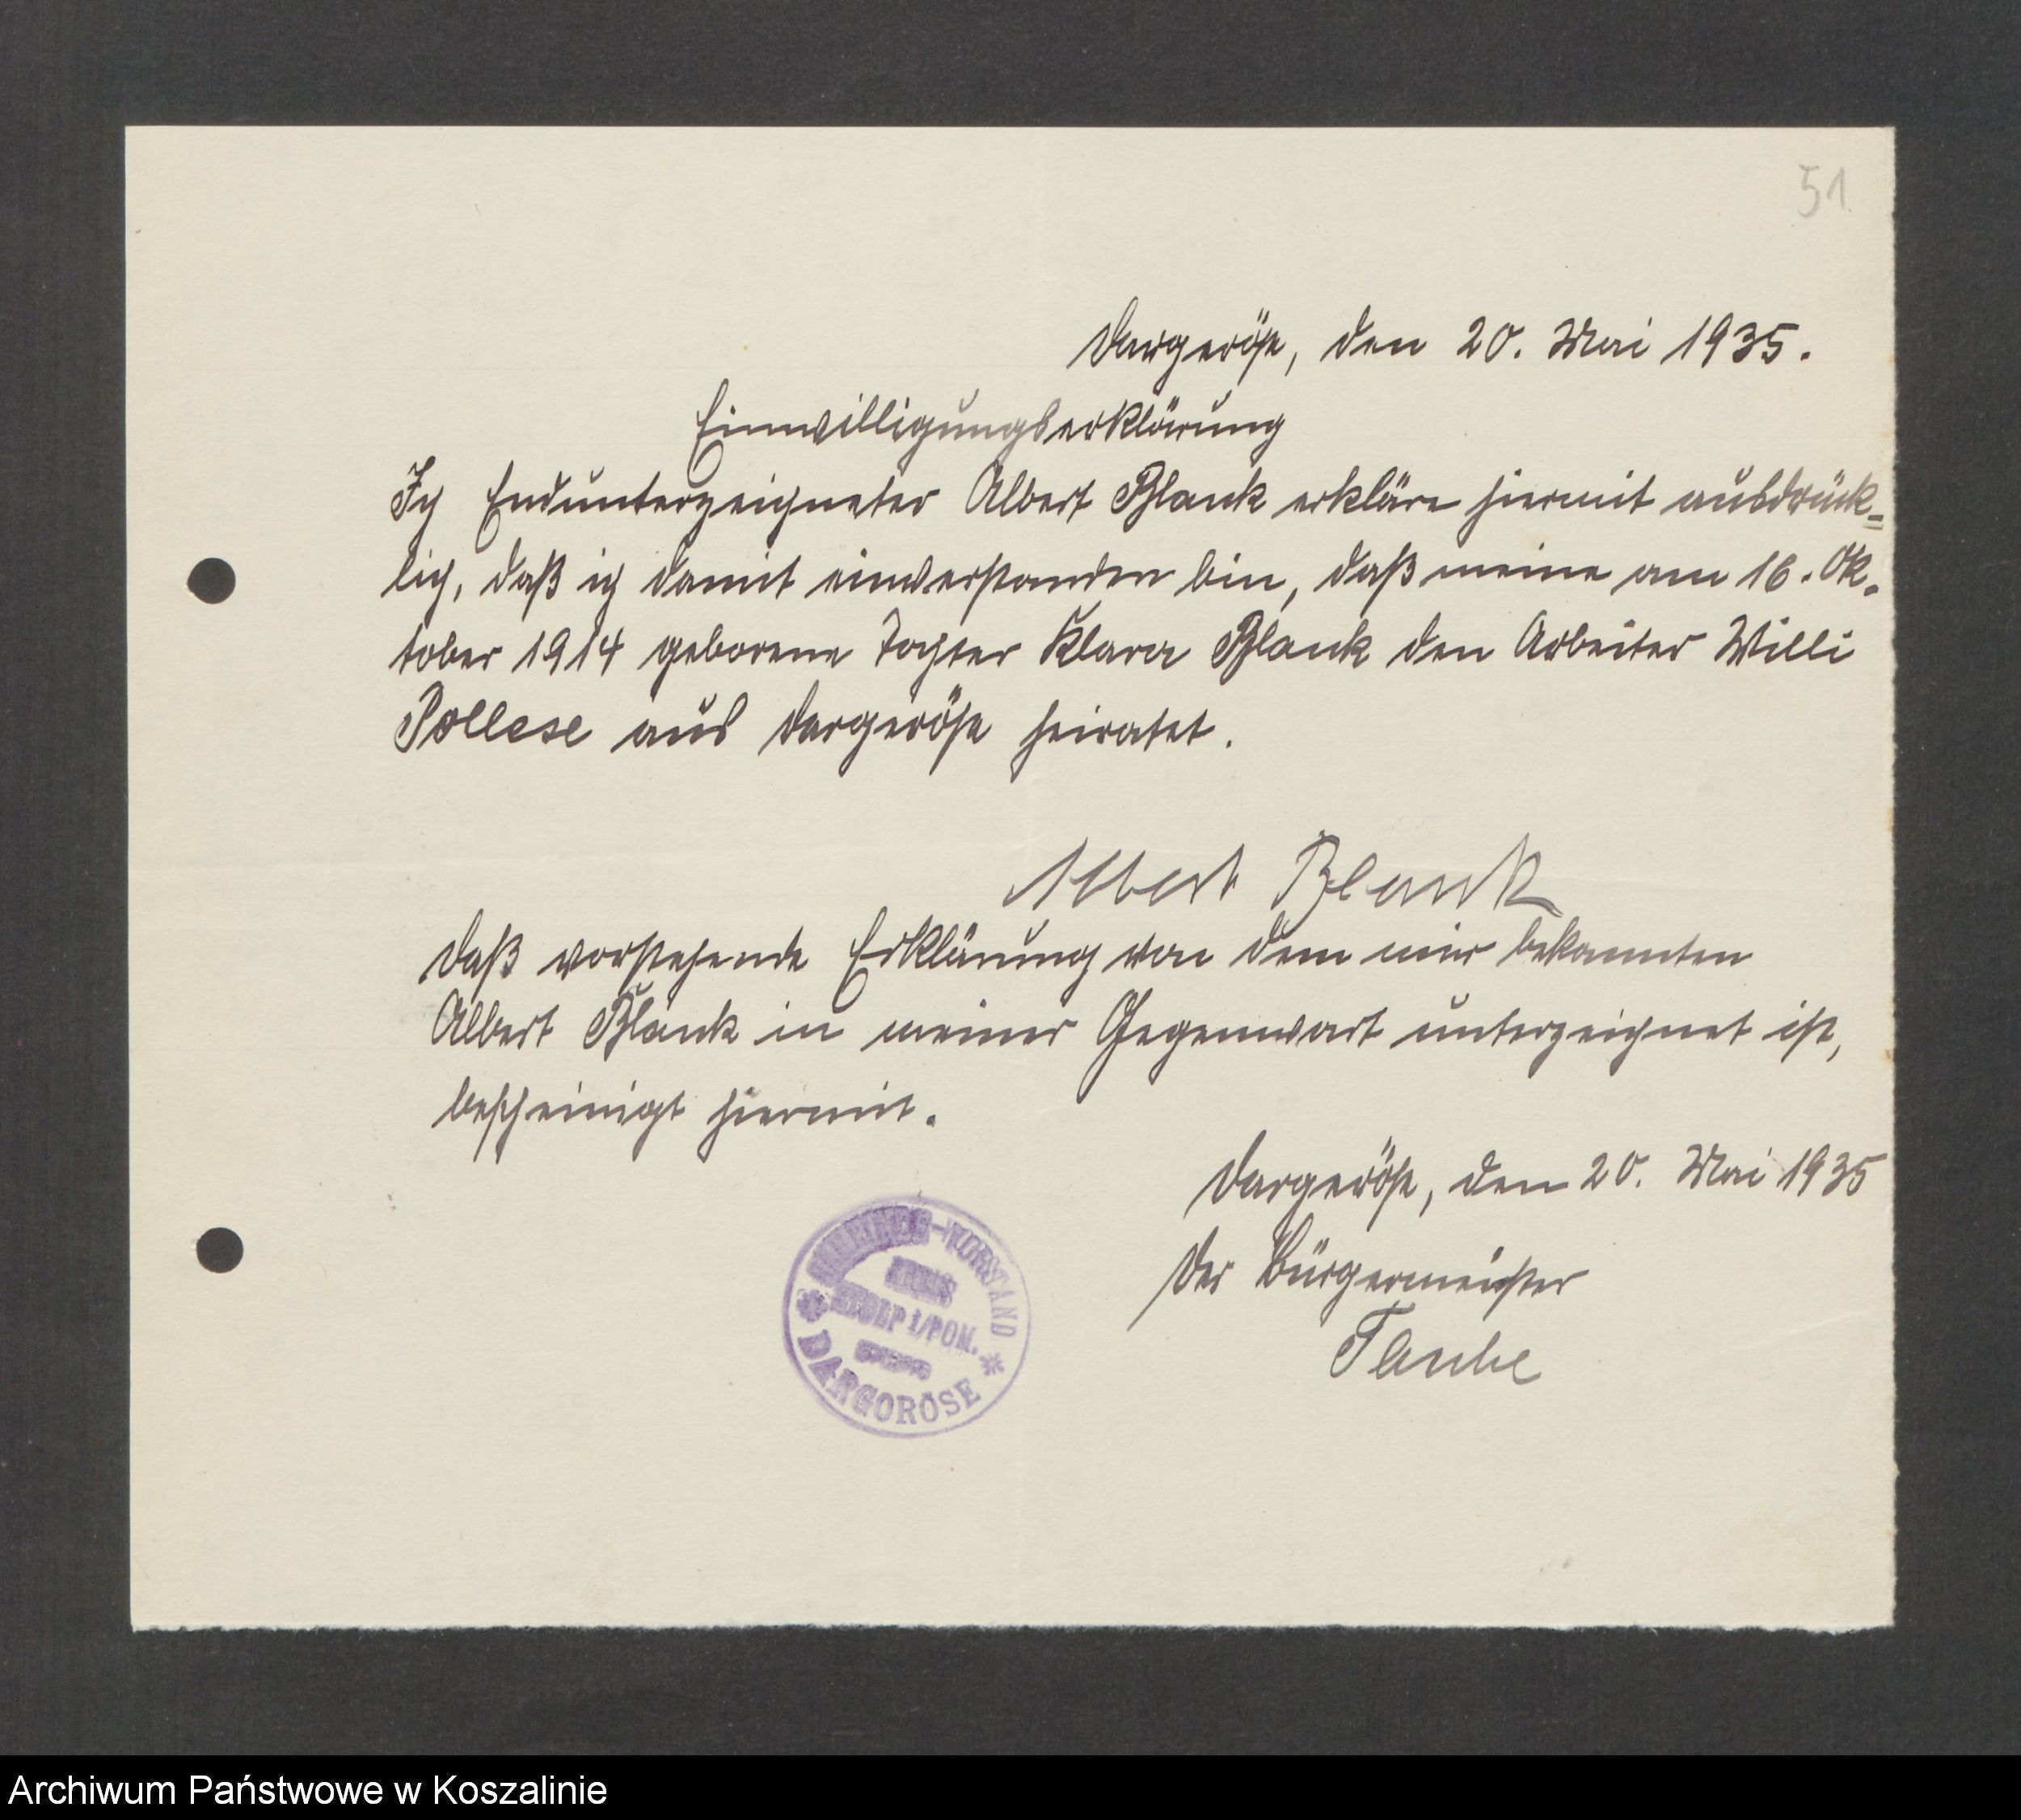 51
Dargeröse, den 20. Mai 1935.
Einwilligungserklärung
Ich Endunterzeichneter Albert Blank erkläre hiermit ausdrück=
lich, daß ich damit einverstanden bin, daß meine am 16. Ok-
tober 1914 geborene Tochter Klara Blank den Arbeiter Willi
Pollese aus Dargeröse heiratet.
Albert Blank
Daß vorstehende Erklärung von dem mir bekannten
Albert Blank in meiner Gegenwart unterzeichnet ist,
bescheinigt hiermit.
Dargeröse, den 20. Mai 1935
Der Bürgermeister
-VORSTAND
KREIS
STOLP i/POM.
* DARGORÖSE *
Archiwum Państwowe w Koszalinie